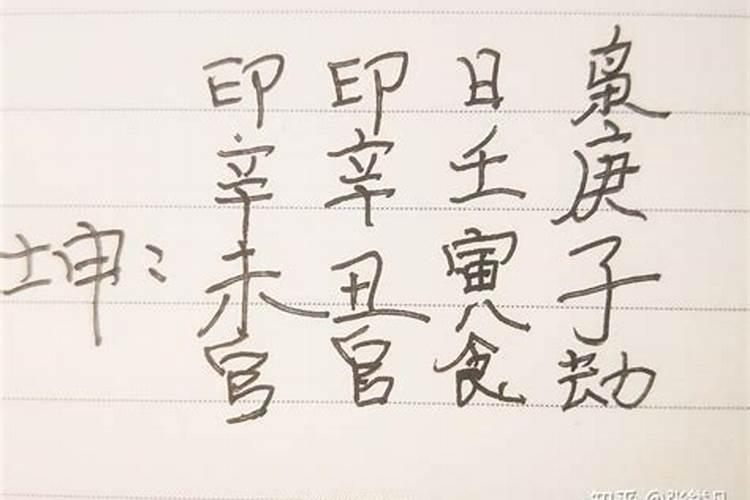 印 印 日 枭
辛 辛 壬 庚
坤: 未 丑 寅 子
官 官 食 劫
知乎